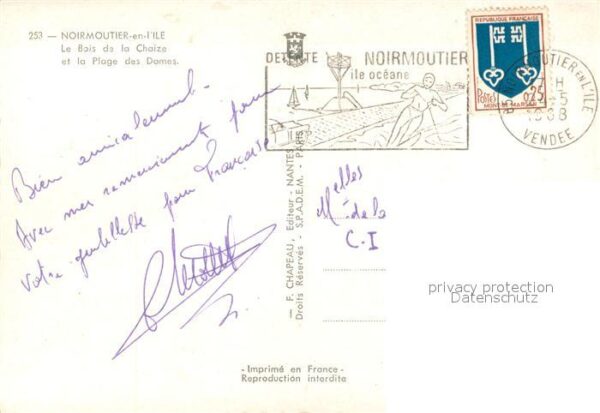 253 — NOIRMOUTIER-en-l'ILE
Le Bois de la Chaize
et la Plage des Dames.
NOIRMOUTIER
ile océane
REPUBLIQUE FRANÇAISE
Postes
0,25
MONT-DE-MARSAN
NOIRMOUTIER EN L'ILE
VENDEE
Bien amicalement.
Avec mes remerciements pour
votre gentillesse pour Françoise
— F. CHAPEAU, Editeur - NANTES
Droits Réservés - S.P.A.D.E.M. - PARIS
Melles
de la
C.I
privacy protection
Datenschutz
-Imprimé en France-
Reproduction interdite